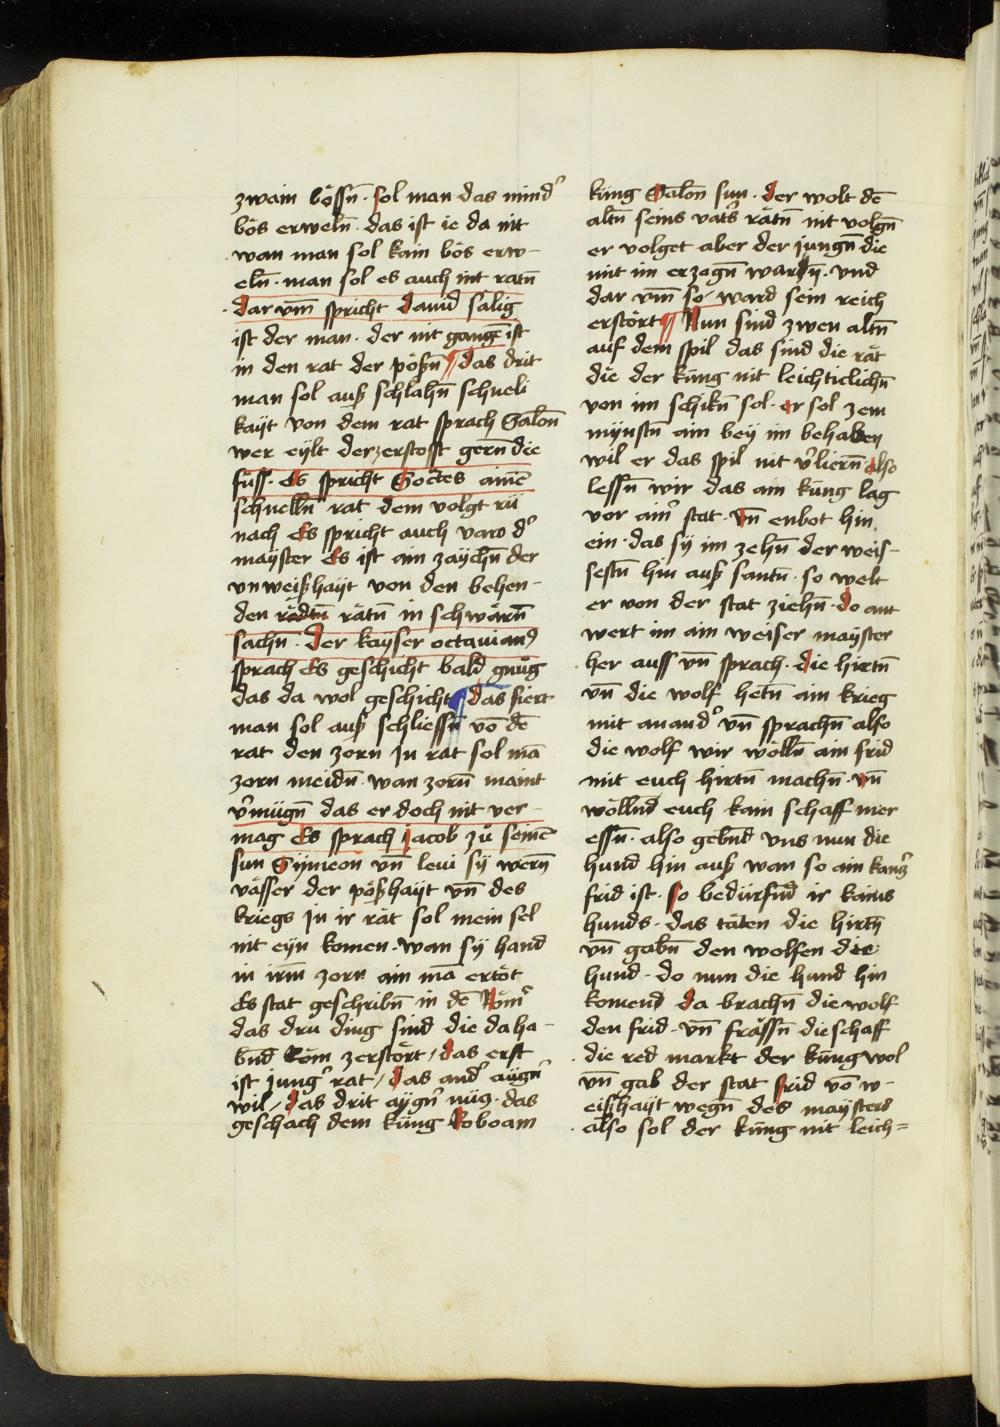 zwain bössn̄ · sol man das mind᾽
bös erweln̄ · das ist ie da nit
wan man sol kain bös erw-
eln̄ · man sol es auch nit ratn̄
Dar vm̄ spricht Dauid sälig
ist der man · der nit gangē ist
in den rat der pößn̄ ¶ das drit
man sol auß schlahn̄ schneli
kayt von dem rat sprach Salon̄
wer eylt der zerstosst gern̄ die
füss · Es spricht Soctes ainē
schnelln̄ rat dem volgt rü
nach Es spricht auch varo d᾽
mayster Es ist ain zaychn̄ der
vnweißhayt von den behen-
den rädtn̄ rätn̄ in schwärn̄
sachn̄ · Der kayser octauian᾽
sprach Es geschicht bald gnůg
das da wol geschicht ¶ das fiert
man sol auß schliessn̄ vō dē
rat den zorn Jn rat sol mā
zorn meidn̄ · wan zorn̄ maint
v᾽mügn̄ das er doch nit ver-
mag Es sprach Jacob zů seinē
sun Symeon vn̄ leui sy wern̄
vässer der pößhayt vn̄ des
kriegs Jn ir rät sol mein sel
nit eyn komen · wan sy hand
in irm̄ zorn ain mā ertöt
Es stat geschribn̄ in dē Röm᾽
das dru ding sind die da ha-
bnd Röm zerstört / das erst
ist jung᾽ rat / Das and᾽ aügn᾽
wil / Das drit aygn᾽ nüg · das
geschach dem küng Roboam
küng Salon̄ sun · Der wolt dē
altn̄ seins vat᾽s rätn̄ nit volgn̄
er volget aber der jungn̄ die
mit im erzogn̄ wardn̄ · vnd
dar vm̄ so ward sein reich
erstört ¶ Nun sind zwen altn̄
auf dem spil das sind die rät
die der küng nit leichticlichn̄
von im schikn̄ sol · er sol zem
mynstn̄ ain bey im behaben
wil er das spil nit v᾽liern̄ also
lessn̄ wir das ain küng lag
vor ain᾽ stat · vn̄ enbot hin
ein · das sy im zehn̄ der weis-
sestn̄ hin auß santn̄ · so welt
er von der stat ziehn̄ · do ant
wert im ain weiser mayster
her auss vn̄ sprach · die hirtn̄
vn̄ die wolf hetn̄ ain krieg
mit anand᾽ vn̄ sprachn̄ also
die wolf wir wölln̄ ain frid
mit euch hirtn̄ machn̄ · vn̄
wöllnd euch kain schaff mer
essn̄ · also gebnd vns nun die
hund hin auß wan so ain kanz᾽
frid ist · so bedürfnd ir kains
hunds · das täten die hirtn̄
vn̄ gabn̄ den wolfen die
hund · do nun die hund hin
komend da brachn̄ die wolf
den frid · vn̄ frässn̄ die schaff
die red markt der küng wol
vn̄ gab der stat frid vō w-
eißhayt wegn̄ des maysters
also sol der küng nit leich=